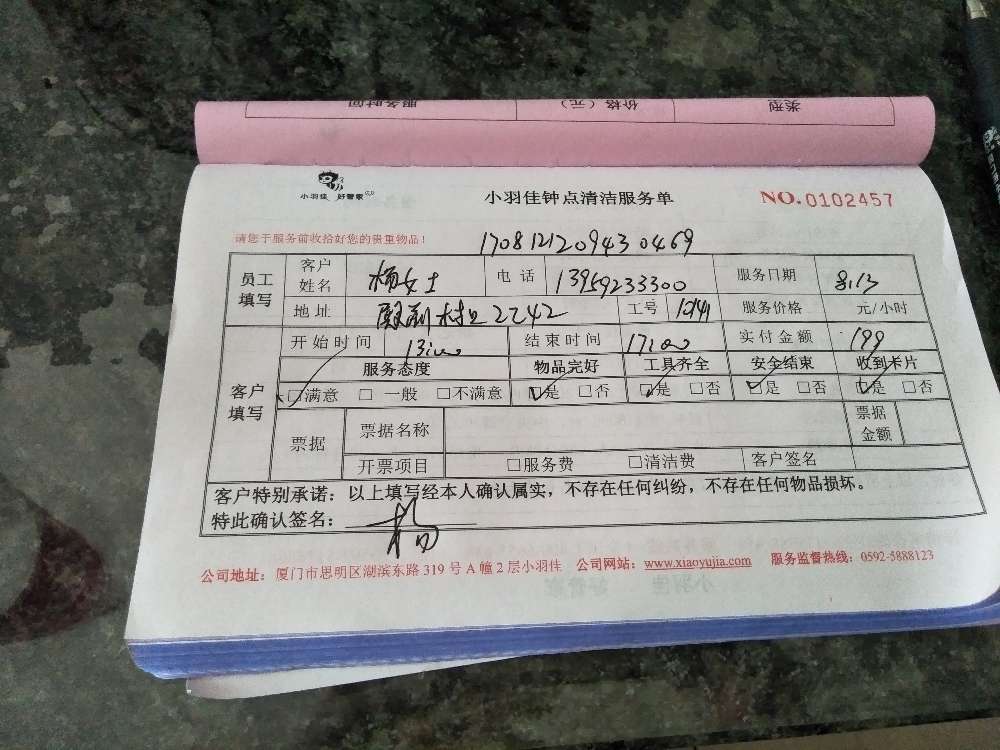 服务时间 价格（元） 类型
小羽佳 好管家
小羽佳钟点清洁服务单 NO.0102457
请您于服务前收拾好您的贵重物品！ 170812120943 0469
员工填写 客户姓名 杨女士 电话 13959233300 服务日期 8.13
地址 2242 工号 服务价格 元/小时
客户填写 开始时间 13:00 结束时间 17:00 实付金额 199
服务态度 物品完好 工具齐全 安全结束 收到卡片
□满意 □一般 □不满意 □是 □否 □是 □否 □是 □否 □是 □否
票据 票据名称 票据金额
开票项目 □服务费 □清洁费 客户签名
客户特别承诺：以上填写经本人确认属实，不存在任何纠纷，不存在任何物品损坏。
特此确认签名：杨
公司地址：厦门市思明区湖滨东路 319 号 A 幢 2 层小羽佳 公司网站：www.xiaoyujia.com 服务监督热线：0592-5888123